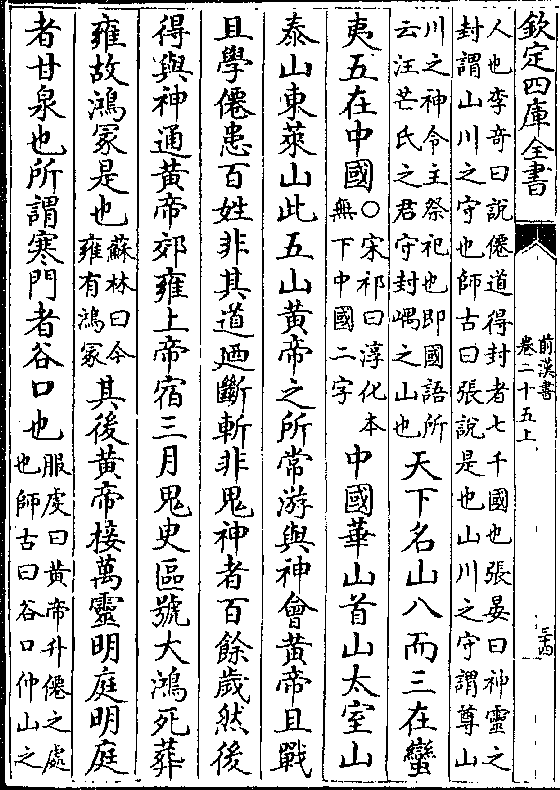 欽定四庫全書
前漢書
卷二十五上
三十四
人也李奇曰說僊道得封者七千國也張晏曰神靈之
封謂山川之守也師古曰張說是也山川之守謂尊山
川之神令主祭祀也即國語所
云汪芒氏之君守封嵎之山也
天下名山八而三在蠻
夷五在中國
○宋祁曰淳化本
無下中國二字
中國華山首山太室山
泰山東萊山此五山黃帝之所常游與神會黃帝且戰
且學僊患百姓非其道廼斷斬非鬼神者百餘歲然後
得與神通黃帝郊雍上帝宿三月鬼史區號大鴻死葬
雍故鴻冢是也
蘇林曰今
雍有鴻冢
其後黃帝接萬靈明庭明庭
者甘泉也所謂寒門者谷口也
服虔曰黃帝升僊之處
也師古曰谷口仲山之